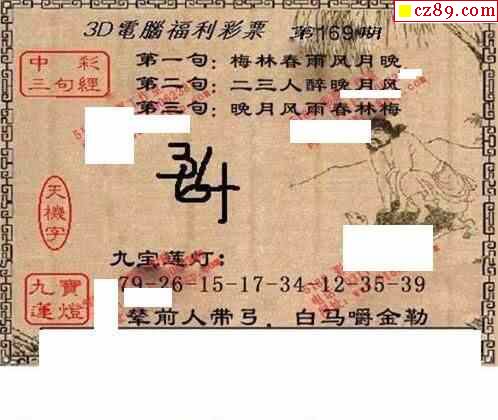 cz89.com
3D電腦福利彩票 第169期
中彩三句經
第一句：梅林春雨风月晚
第二句：二三人醉晚月风
第三句：晚月风雨春林梅
天機字
九宝莲灯：
九寶蓮燈
79-26-15-17-34-12-35-39
辇前人带弓，白马嚼金勒